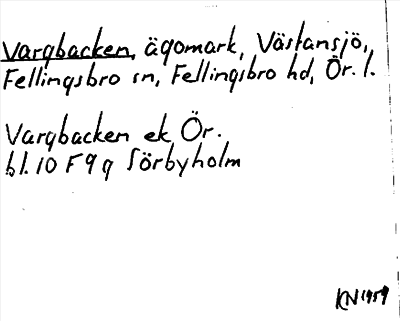 Vargbacken, ägomark, Västansjö,
Fellingsbro sn, Fellingsbro hd, Ör. l.
Vargbacken ek Ör.
bl. 10 F 9 g Sörbyholm
KN 1959